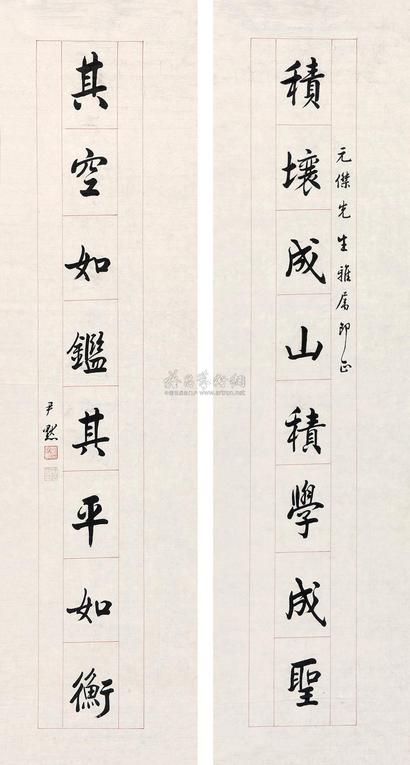 元傑先生雅屬即正
積壤成山積學成聖
其空如鑑其平如衡
尹默
www.artron.net